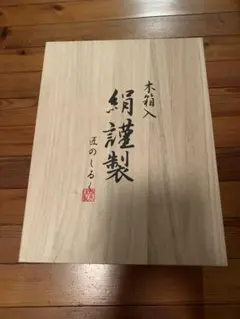 木箱入
絹謹製
匠のしるく